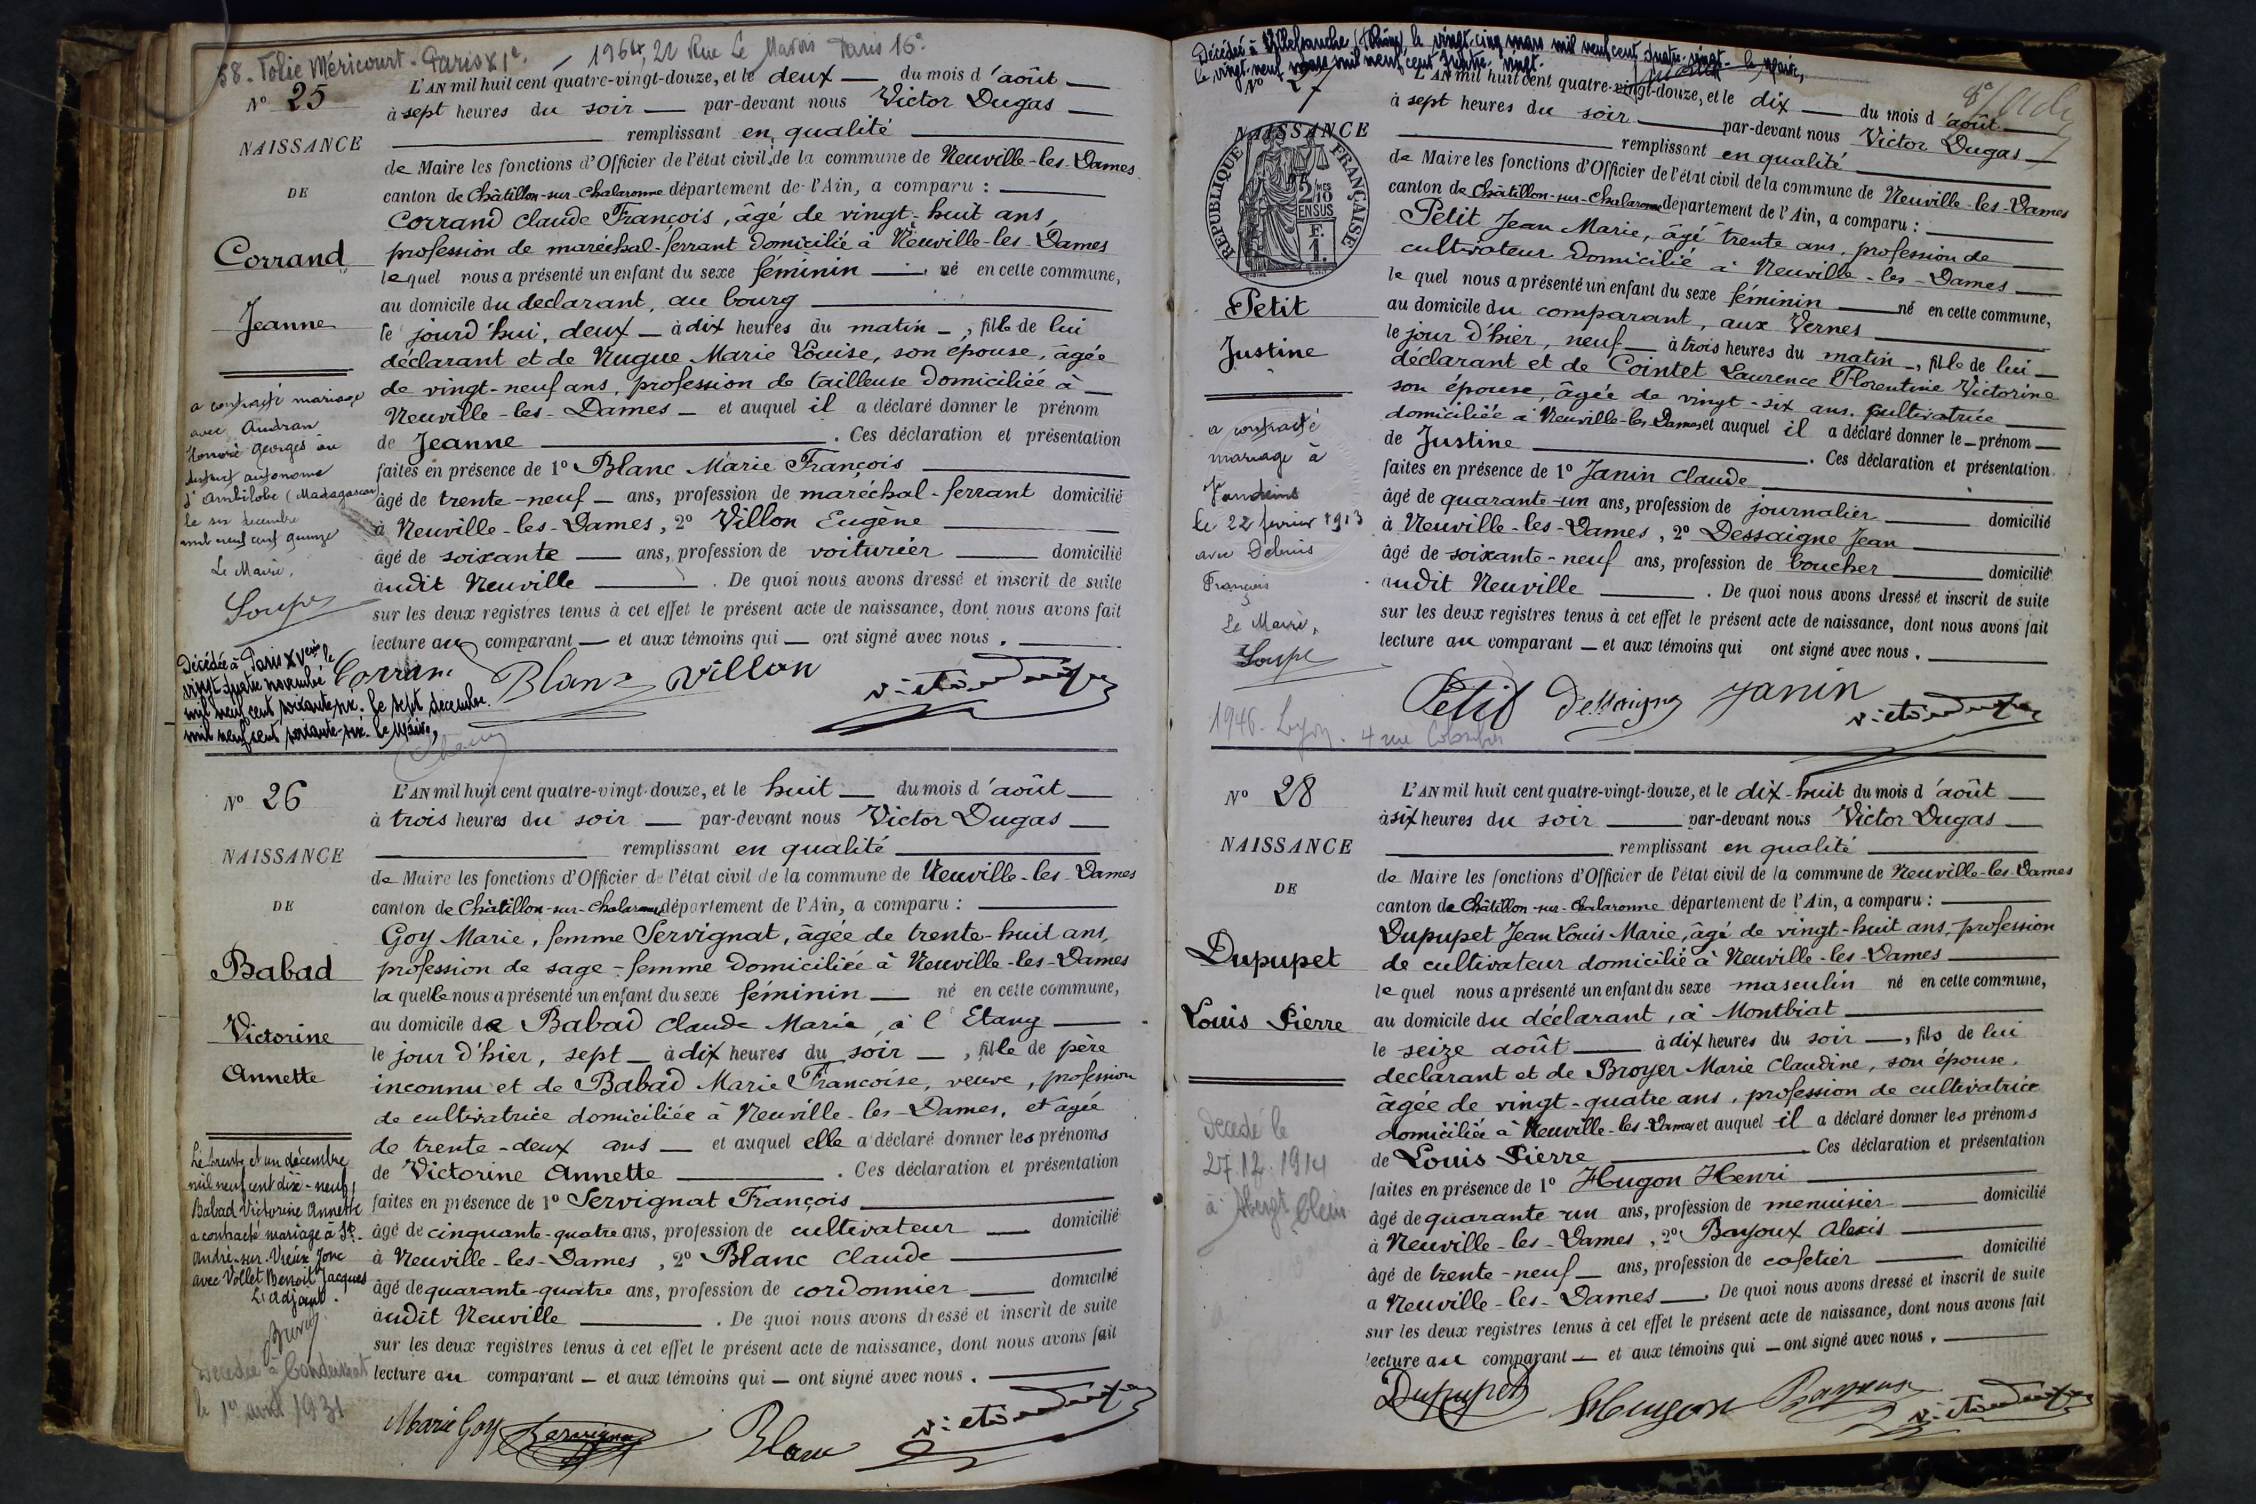 58. Folie Méricourt - Paris XIe - 1964, 22 Rue Le Marois Paris 16e
No 25
NAISSANCE
DE
Corrand
Jeanne
a contracté mariage
avec Audran
Honoré Georges au
district autonome
d'Ambilobe (Madagascar)
le six decembre
mil neuf cent quinze
Le Maire,
Soupe
Décédée à Paris XVème le
vingt quatre novembre
mil neuf cent soixante six. Le sept décembre
mil neuf cent soixante-six. Le Maire,
L'AN mil huit cent quatre-vingt-douze, et le deux — du mois d'août —
à sept heures du soir — par-devant nous Victor Dugas —
remplissant en qualité
de Maire les fonctions d'Officier de l'état civil de la commune de Neuville-les-Dames
canton de Châtillon-sur-Chalaronne département de l'Ain, a comparu :
Corrand Claude François, âgé de vingt-huit ans,
profession de maréchal-ferrant domicilié à Neuville-les-Dames
lequel nous a présenté un enfant du sexe féminin — né en cette commune,
au domicile du declarant, au bourg
le jourd'hui, deux — à dix heures du matin —, fille de lui
déclarant et de Nugue Marie Louise, son épouse, âgée
de vingt-neuf ans, profession de tailleuse domiciliée à
Neuville-les-Dames — et auquel il a déclaré donner le prénom
de Jeanne — . Ces déclaration et présentation
faites en présence de 1o Blanc Marie François
âgé de trente-neuf — ans, profession de maréchal-ferrant domicilié
à Neuville-les-Dames, 2o Villon Eugène
âgé de soixante — ans, profession de voiturier — domicilié
audit Neuville — . De quoi nous avons dressé et inscrit de suite
sur les deux registres tenus à cet effet le présent acte de naissance, dont nous avons fait
lecture au comparant — et aux témoins qui — ont signé avec nous .
Corrand Blanc Villon Victor Dugas
No 26
NAISSANCE
DE
Babad
Victorine
Annette
Le trente et un décembre
mil neuf cent dix-neuf,
Babad Victorine Annette
a contracté mariage à St.
André-sur-Vieux Jonc
avec Vollet Benoit Jacques
L'adjoint.
Décédée à Condeissiat
le 1er avril 1931
L'AN mil huit cent quatre-vingt-douze, et le huit — du mois d'août —
à trois heures du soir — par-devant nous Victor Dugas —
remplissant en qualité
de Maire les fonctions d'Officier de l'état civil de la commune de Neuville-les-Dames
canton de Châtillon-sur-Chalaronne département de l'Ain, a comparu :
Goy Marie, femme Servignat, âgée de trente-huit ans,
profession de sage-femme domiciliée à Neuville-les-Dames
laquelle nous a présenté un enfant du sexe féminin — né en cette commune,
au domicile de Babad Claude Marie, à l'Etang
le jour d'hier, sept — à dix heures du soir —, fille de père
inconnu et de Babad Marie Françoise, veuve, profession
de cultivatrice domiciliée à Neuville-les-Dames, et âgée
de trente-deux ans — et auquel elle a déclaré donner les prénoms
de Victorine Annette — . Ces déclaration et présentation
faites en présence de 1o Servignat François
âgé de cinquante-quatre ans, profession de cultivateur — domicilié
à Neuville-les-Dames, 2o Blanc Claude
âgé de quarante-quatre ans, profession de cordonnier — domicilié
audit Neuville — . De quoi nous avons dressé et inscrit de suite
sur les deux registres tenus à cet effet le présent acte de naissance, dont nous avons fait
lecture au comparant — et aux témoins qui — ont signé avec nous .
Marie Goy Servignat Blanc Victor Dugas
Décédée à Villefranche (Rhône), le vingt-cinq mars mil neuf cent quatre-vingt. Le Maire,
le vingt-neuf mars mil neuf cent quatre-vingt.
No 27
NAISSANCE
REPUBLIQUE FRANÇAISE
2/10 EN SUS
F. 1.
Petit
Justine
a contracté
mariage à
Vandeins
le 22 février 1913
avec Debuis
François
Le Maire,
Soupe
1946. Lyon. 4 rue Colombier
L'AN mil huit cent quatre-vingt-douze, et le dix — du mois d'août
à sept heures du soir — par-devant nous Victor Dugas —
remplissant en qualité
de Maire les fonctions d'Officier de l'état civil de la commune de Neuville-les-Dames
canton de Châtillon-sur-Chalaronne département de l'Ain, a comparu :
Petit Jean Marie, âgé trente ans, profession de
cultivateur domicilié à Neuville-les-Dames
lequel nous a présenté un enfant du sexe féminin — né en cette commune,
au domicile du comparant, aux Vernes
le jour d'hier, neuf — à trois heures du matin —, fille de lui
déclarant et de Cointet Laurence Florentine Victorine
son épouse, âgée de vingt-six ans. cultivatrice
domiciliée à Neuville-les-Dames et auquel il a déclaré donner le — prénom —
de Justine — . Ces déclaration et présentation
faites en présence de 1o Janin Claude
âgé de quarante-un ans, profession de journalier — domicilié
à Neuville-les-Dames, 2o Dessaigne Jean
âgé de soixante-neuf ans, profession de boucher — domicilié
audit Neuville — . De quoi nous avons dressé et inscrit de suite
sur les deux registres tenus à cet effet le présent acte de naissance, dont nous avons fait
lecture au comparant — et aux témoins qui ont signé avec nous .
Petit Dessaigne Janin Victor Dugas
No 28
NAISSANCE
DE
Dupupet
Louis Pierre
Décédé le
27.12.1914
à
L'AN mil huit cent quatre-vingt-douze, et le dix-huit du mois d'août —
à six heures du soir — par-devant nous Victor Dugas —
remplissant en qualité
de Maire les fonctions d'Officier de l'état civil de la commune de Neuville-les-Dames
canton de Châtillon-sur-Chalaronne département de l'Ain, a comparu :
Dupupet Jean Louis Marie, âgé de vingt-huit ans, profession
de cultivateur domicilié à Neuville-les-Dames
lequel nous a présenté un enfant du sexe masculin né en cette commune,
au domicile du déclarant, à Montbriat
le seize août — à dix heures du soir —, fils de lui
declarant et de Broyer Marie Claudine, son épouse,
âgée de vingt-quatre ans, profession de cultivatrice
domiciliée à Neuville-les-Dames et auquel il a déclaré donner les prénoms
de Louis Pierre — Ces déclaration et présentation
faites en présence de 1o Hugon Henri
âgé de quarante-un ans, profession de menuisier — domicilié
à Neuville-les-Dames, 2o Bayoux Alexis
âgé de trente-neuf — ans, profession de cafetier — domicilié
a Neuville-les-Dames — . De quoi nous avons dressé et inscrit de suite
sur les deux registres tenus à cet effet le présent acte de naissance, dont nous avons fait
lecture au comparant — et aux témoins qui — ont signé avec nous .
Dupupet Hugon Bayoux Victor Dugas